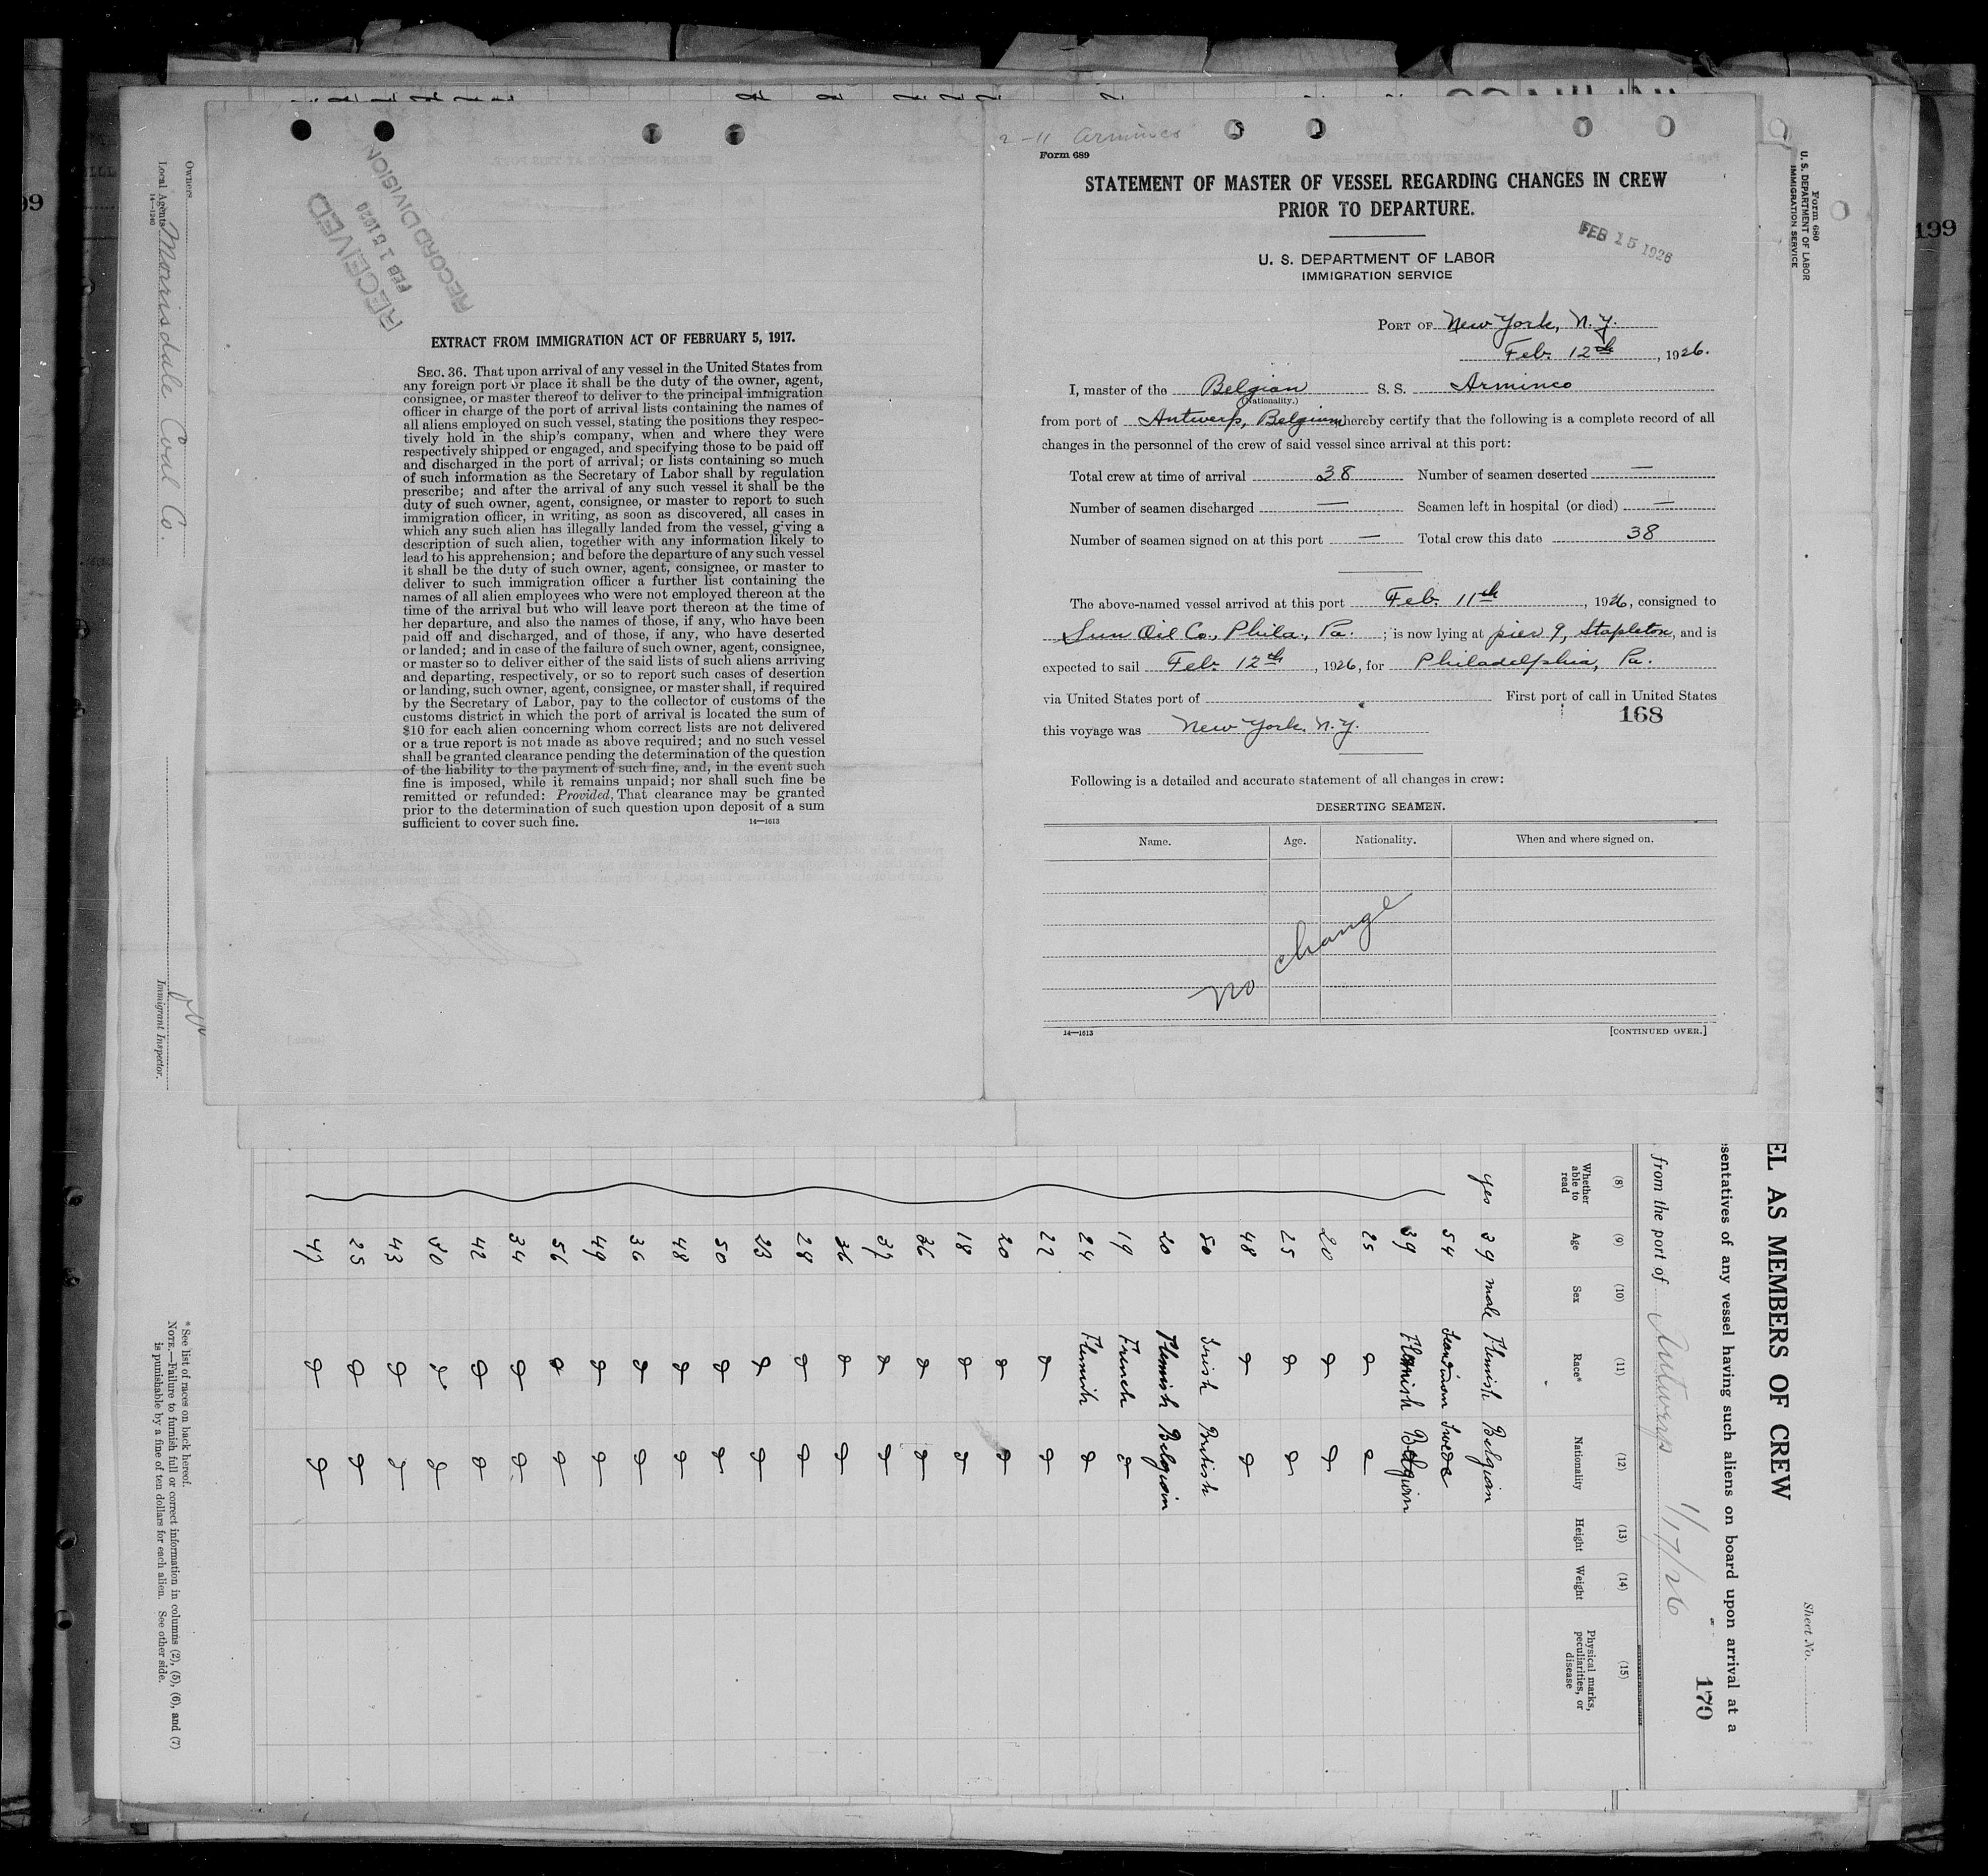 2-11 Arminco
Form 689
STATEMENT OF MASTER OF VESSEL REGARDING CHANGES IN CREW
PRIOR TO DEPARTURE.
FEB 15 1926
U. S. DEPARTMENT OF LABOR
IMMIGRATION SERVICE
PORT OF New York, N.Y.
Feb. 12th, 1926.
I, master of the Belgian S. S. Arminco
(Nationality.)
from port of Antwerp, Belgium hereby certify that the following is a complete record of all
changes in the personnel of the crew of said vessel since arrival at this port:
Total crew at time of arrival 38 Number of seamen deserted —
Number of seamen discharged — Seamen left in hospital (or died) —
Number of seamen signed on at this port — Total crew this date 38
The above-named vessel arrived at this port Feb. 11th, 1926, consigned to
Sun Oil Co., Phila., Pa. ; is now lying at pier 9, Stapleton, and is
expected to sail Feb. 12th, 1926, for Philadelphia, Pa.
via United States port of First port of call in United States
168
this voyage was New York, N.Y.
Following is a detailed and accurate statement of all changes in crew:
DESERTING SEAMEN.
Name. Age. Nationality. When and where signed on.
no change
14—1613 [CONTINUED OVER.]
RECEIVED
FEB 15 1926
RECORD DIVISION
EXTRACT FROM IMMIGRATION ACT OF FEBRUARY 5, 1917.
SEC. 36. That upon arrival of any vessel in the United States from
any foreign port or place it shall be the duty of the owner, agent,
consignee, or master thereof to deliver to the principal immigration
officer in charge of the port of arrival lists containing the names of
all aliens employed on such vessel, stating the positions they respec-
tively hold in the ship's company, when and where they were
respectively shipped or engaged, and specifying those to be paid off
and discharged in the port of arrival; or lists containing so much
of such information as the Secretary of Labor shall by regulation
prescribe; and after the arrival of any such vessel it shall be the
duty of such owner, agent, consignee, or master to report to such
immigration officer, in writing, as soon as discovered, all cases in
which any such alien has illegally landed from the vessel, giving a
description of such alien, together with any information likely to
lead to his apprehension; and before the departure of any such vessel
it shall be the duty of such owner, agent, consignee, or master to
deliver to such immigration officer a further list containing the
names of all alien employees who were not employed thereon at the
time of the arrival but who will leave port thereon at the time of
her departure, and also the names of those, if any, who have been
paid off and discharged, and of those, if any, who have deserted
or landed; and in case of the failure of such owner, agent, consignee,
or master so to deliver either of the said lists of such aliens arriving
and departing, respectively, or so to report such cases of desertion
or landing, such owner, agent, consignee, or master shall, if required
by the Secretary of Labor, pay to the collector of customs of the
customs district in which the port of arrival is located the sum of
$10 for each alien concerning whom correct lists are not delivered
or a true report is not made as above required; and no such vessel
shall be granted clearance pending the determination of the question
of the liability to the payment of such fine, and, in the event such
fine is imposed, while it remains unpaid; nor shall such fine be
remitted or refunded: Provided, That clearance may be granted
prior to the determination of such question upon deposit of a sum
sufficient to cover such fine. 14—1613
Form 680
U. S. DEPARTMENT OF LABOR
IMMIGRATION SERVICE
Sheet No.
EL AS MEMBERS OF CREW
sentatives of any vessel having such aliens on board upon arrival at a
170
from the port of Antwerp 1/17/26
(8) (9) (10) (11) (12) (13) (14) (15)
Whether able to read Age Sex Race* Nationality Height Weight Physical marks, peculiarities, or disease
yes 39 male Flemish Belgian
54 Swede
39 Flemish Belgian
25
20
25
48
50 Irish British
20 Flemish Belgian
19 French
24 Flemish
22
20
18
36
37
36
28
23
50
48
36
49
56
34
42
30
43
25
47
* See list of races on back hereof.
NOTE.—Failure to furnish full or correct information in columns (2), (5), (6), and (7)
is punishable by a fine of ten dollars for each alien. See other side.
Owners
Local Agents Morrisdale Coal Co.
14—1240
Immigrant Inspector.
199
99